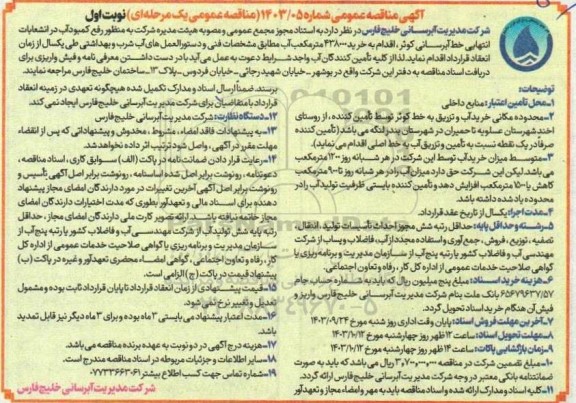 آگهی مناقصه عمومی شماره ۱۴۰۳/۰۵ (مناقصه عمومی یک مرحله‌ای) نوبت اول
شرکت مدیریت آبرسانی خلیج فارس در نظر دارد به استناد مجوز مجمع عمومی و مصوبه هیئت مدیره شرکت به منظور رفع کمبود آب در انشعابات
انتهایی خط آبرسانی کوثر، اقدام به خرید ۴۳۸۰۰۰۰ مترمکعب آب مطابق مشخصات فنی و دستورالعمل های آب شرب و بهداشتی طی یکسال از زمان
انعقاد قرارداد اقدام نماید. لذا از کلیه تأمین کنندگان آب واجد شرایط دعوت به عمل می آید با در دست داشتن معرفی نامه و فیش واریزی برای
دریافت اسناد مناقصه به دفتر این شرکت واقع در بوشهر - خیابان شهید رجائی - خیابان فردوس - پلاک ۱۳ - ساختمان خلیج فارس مراجعه نمایند.
توضیحات:
۱- محل تأمین اعتبار: منابع داخلی
۲- محدوده مکانی خرید آب و تزریق به خط کوثر توسط تأمین کننده، از روستای
اخند شهرستان عسلویه تا حمیران در شهرستان بندر لنگه می باشد (تأمین کننده
صرفاً در یک نقطه نسبت به تأمین و تزریق آب به خط اصلی اقدام می نماید).
۳- متوسط میزان خرید آب توسط این شرکت در هر شبانه روز ۱۲۰۰۰ مترمکعب
می باشد. لیکن این شرکت حق دارد میزان آب را در هر شبانه روز تا ۹۰۰۰ مترمکعب
کاهش یا ۱۵۰۰۰ مترمکعب افزایش دهد و تأمین کننده بایستی ظرفیت تولید آب را در
محدوده یاد شده داشته باشد.
۴- مدت اجرا: یکسال از تاریخ عقد قرارداد.
۵- رشته و حداقل پایه: حداقل رتبه شش مجوز احداث تأسیسات تولید، انتقال،
تصفیه، توزیع، فروش، جمع آوری و استفاده مجدد از آب، فاضلاب و پساب از شرکت
مهندسی آب و فاضلاب کشور یا رتبه پنج آب از سازمان مدیریت و برنامه ریزی یا
گواهی صلاحیت خدمات عمومی از اداره کل کار، رفاه و تعاون اجتماعی.
۶- هزینه خرید اسناد: مبلغ پنج میلیون ریال که باید به شماره حساب جام
۶۵۶۷۹۶۳۷/۵۷ بانک ملت بنام شرکت مدیریت آبرسانی خلیج فارس واریز و
فیش آن هنگام خرید اسناد تحویل گردد.
۷- آخرین مهلت فروش اسناد: پایان وقت اداری روز شنبه مورخ ۱۴۰۳/۰۹/۲۴
۸- مهلت تحویل اسناد: ساعت ۱۲ ظهر روز چهارشنبه مورخ ۱۴۰۳/۱۰/۱۲
۹- زمان بازگشایی پاکات: ساعت ۱۴ ظهر روز چهارشنبه مورخ ۱۴۰۳/۱۰/۱۲
۱۰- مبلغ تضمین شرکت در مناقصه ریال می باشد که باید به صورت
ضمانتنامه بانکی معتبر در وجه شرکت مدیریت آبرسانی خلیج فارس ارائه گردد.
۱۱- کلیه اسناد و مدارک ارائه شده و اسناد مناقصه باید به مهر و امضاء مجاز و تعهدآور
برسند. ضمناً ارسال اسناد و مدارک تکمیل شده هیچگونه تعهدی در زمینه انعقاد
قرارداد با متقاضیان برای شرکت مدیریت آبرسانی خلیج فارس ایجاد نمی کند.
۱۲- دستگاه نظارت: شرکت مدیریت آبرسانی خلیج فارس
۱۳- به پیشنهادات فاقد امضاء، مشروط، مخدوش و پیشنهاداتی که پس از انقضاء
مهلت مقرر در آگهی، واصل شود ترتیب اثر داده نخواهد شد.
۱۴- رعایت قرار دادن ضمانتنامه در پاکت (الف) سوابق کاری، اسناد مناقصه،
دعوتنامه، رونوشت برابر اصل شده اساسنامه، رونوشت برابر اصل آگهی تأسیس و
رونوشت برابر اصل آگهی آخرین تغییرات در مورد دارندگان امضای مجاز پیشنهاد
دهنده برای اسناد مالی و تعهدآور بطوری که مدت اختیارات دارندگان امضای
مجاز خاتمه نیافته باشد. ارائه تصویر کارت ملی دارندگان امضای مجاز، حداقل
رتبه پایه شش تولید آب از شرکت مهندسی آب و فاضلاب کشور یا رتبه پنج آب از
سازمان مدیریت و برنامه ریزی یا گواهی صلاحیت خدمات عمومی از اداره کل
کار، رفاه و تعاون اجتماعی، گواهی امضاء محضری تعهدآور و غیره در پاکت (ب)
پیشنهاد قیمت در پاکت (ج) الزامی است.
۱۵- قیمت پیشنهادی از زمان انعقاد قرارداد تا پایان قرارداد ثابت بوده و مشمول
تعدیل و تغییر نرخ نمی شود.
۱۶- مدت اعتبار پیشنهاد می بایستی ۳ ماه بوده و برای ۳ ماه دیگر نیز قابل تمدید
باشد.
۱۷- هزینه درج آگهی در دو نوبت به عهده برنده مناقصه می باشد.
۱۸- سایر اطلاعات و جزئیات مربوطه در اسناد مناقصه مندرج است.
۱۹- شماره تماس جهت کسب اطلاع بیشتر ۰۷۷۳۳۶۶۳۰۶۱
شرکت مدیریت آبرسانی خلیج فارس